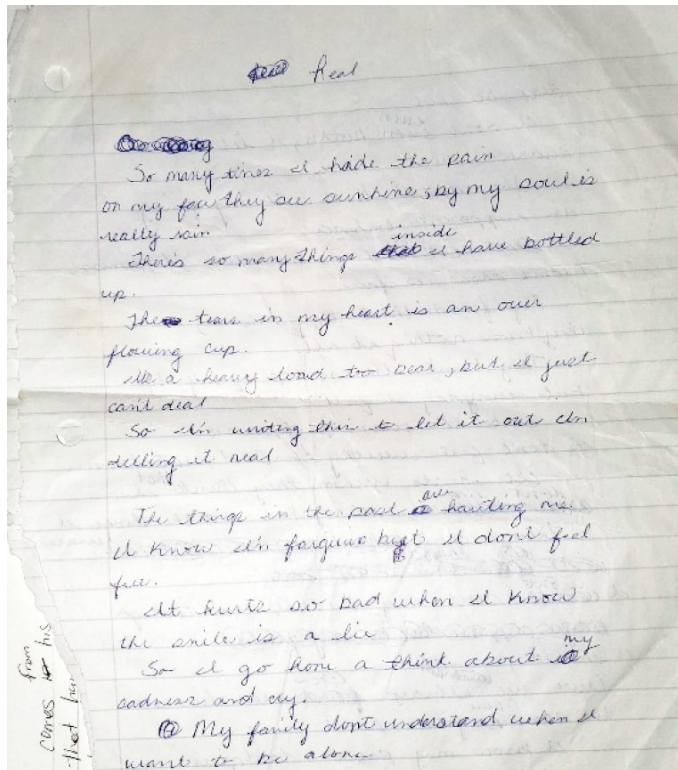 Real
So many times I hide the pain
on my face they see sunshine, by my soul is
really rain
There's so many things inside I have bottled
up.
The tears in my heart is an over
flowing cup.
a heavy load too bear, but I just
can't deal
So I'm writing this to let it out I'm
telling it real
The things in the past are haunting me.
I know I'm forgive but I dont feel
free.
It hurts so bad when I know
the smile is a lie
So I go home a think about my
sadness and cry.
My family don't understand when I
want to be alone
comes from his
that